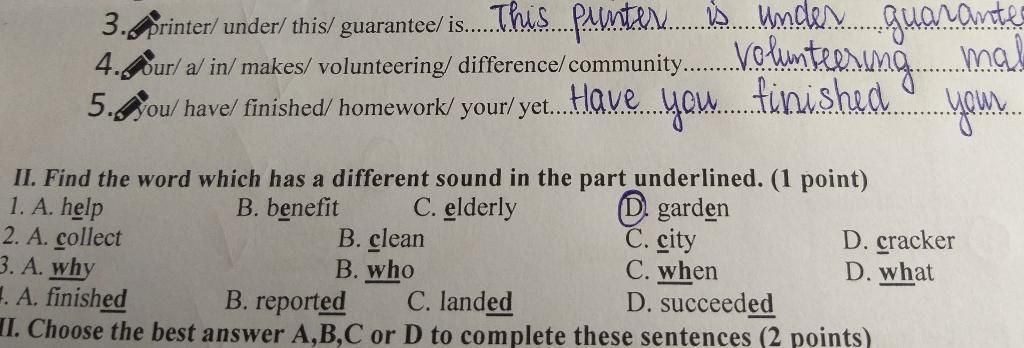 3. printer/ under/ this/ guarantee/ is..... This printer is under guarantee
4. our/ a/ in/ makes/ volunteering/ difference/ community...... Volunteering
5. you/ have/ finished/ homework/ your/ yet... Have you finished your
II. Find the word which has a different sound in the part underlined. (1 point)
1. A. help B. benefit C. elderly D. garden
2. A. collect B. clean C. city D. cracker
3. A. why B. who C. when D. what
. A. finished B. reported C. landed D. succeeded
II. Choose the best answer A,B,C or D to complete these sentences (2 points)